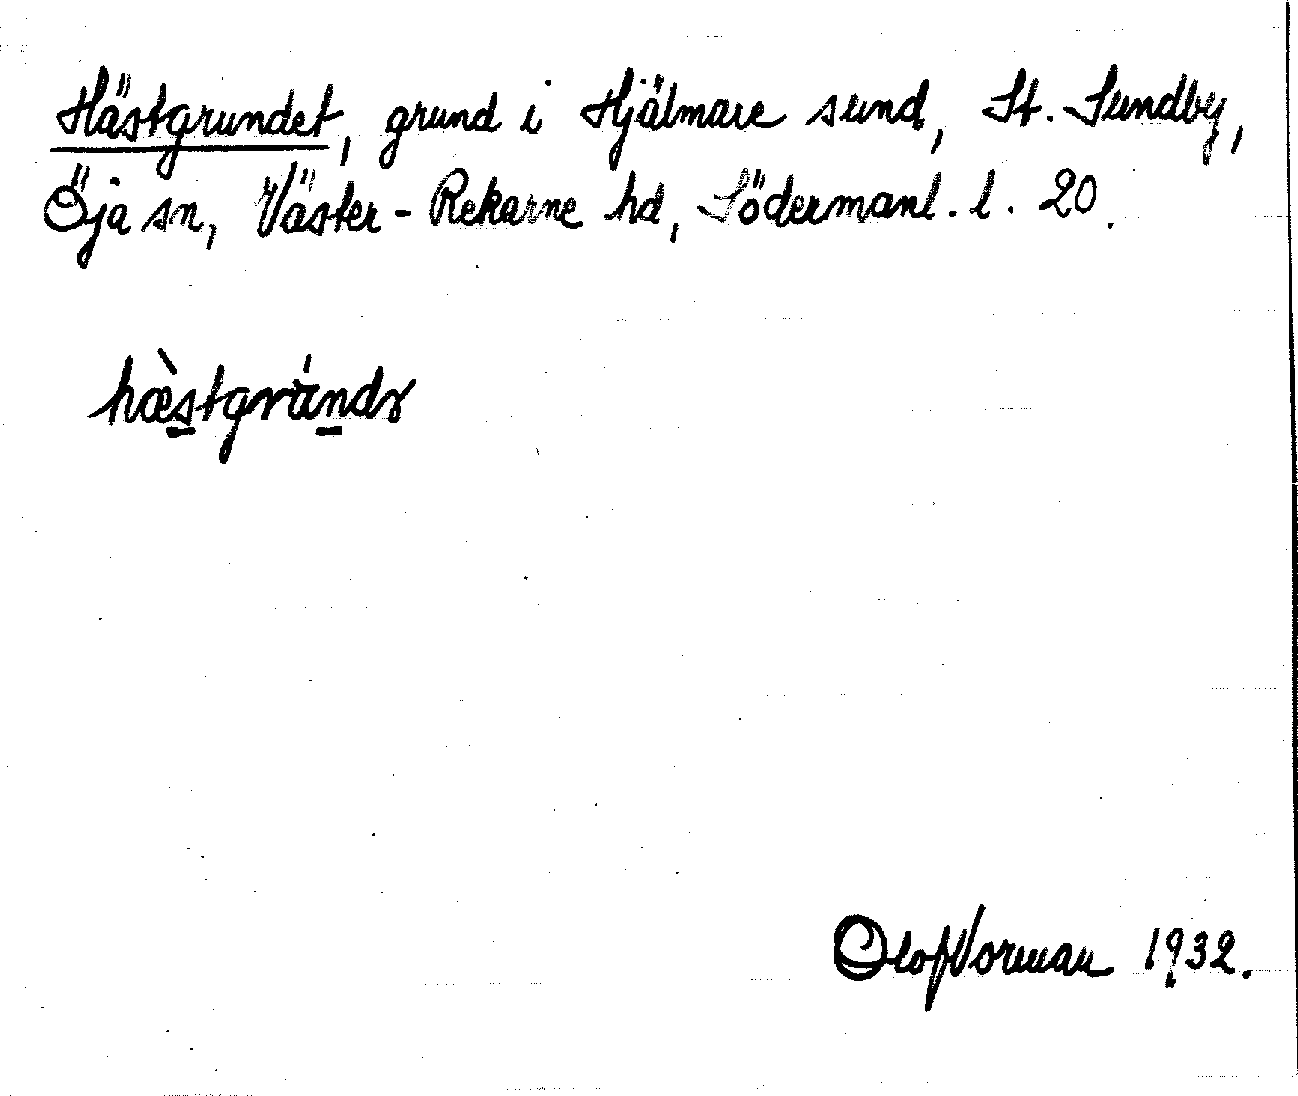 Hästgrundet, grund i Hjälmare sund, St. Sundby,
Öja sn, Väster-Rekarne hd, Södermanl. l. 20.
hæ̀stgrándr
Olof Norman 1932.